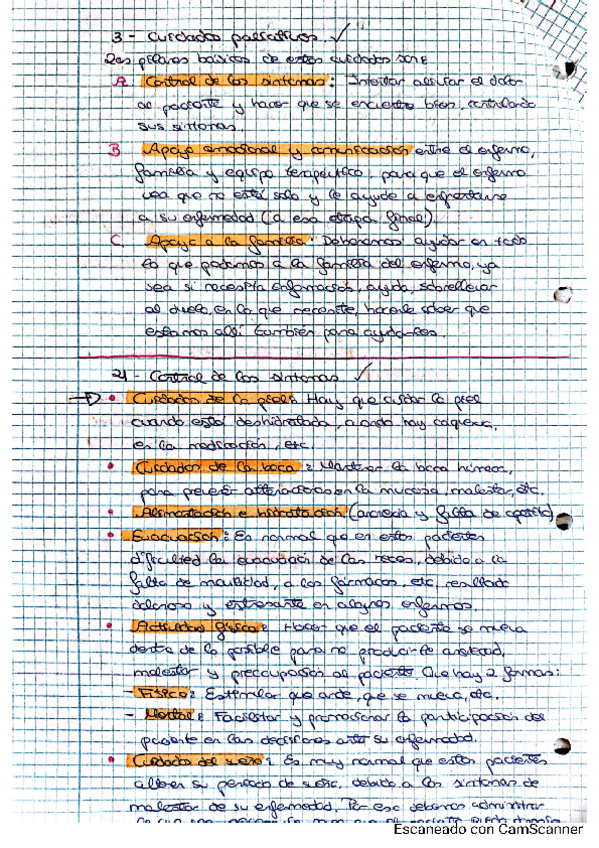 3 - Cuidados paliativos. ✓
Los pilares básicos de estos cuidados son:
A. Control de los síntomas: Intentar aliviar el dolor
al paciente y hacer que se encuentre bien, controlando
sus síntomas.
B Apoyo emocional y comunicación entre el enfermo,
familia y equipo terapéutico, para que el enfermo
vea que no está solo y le ayude a enfrentarse
a su enfermedad (a esa etapa final).
C. Apoyo a la familia: Deberemos ayudar en todo
lo que podamos a la familia del enfermo, ya
sea si necesita información, ayuda, sobrellevar
el duelo, en lo que necesite, hacerle saber que
estamos allí también para ayudarles.
4 - Control de los síntomas. ✓
→ • Cuidados de la piel: Hay que cuidar la piel
cuando está deshidratada, cuando hay caquexia,
en la medicación, etc.
• Cuidados de la boca: Mantener la boca húmeda,
para prevenir alteraciones en la mucosa, malestar, etc.
• Alimentación e hidratación (anorexia y falta de apetito)
• Evacuación: Es normal que en estos pacientes
dificulted la evacuación de las heces, debido a la
falta de movilidad, a los fármacos, etc, resultado
doloroso y estresante en algunos enfermos.
• Actividad física: Hacer que el paciente se mueva
dentro de lo posible para no producirle ansiedad,
malestar y preocupación al paciente. Que hay 2 formas:
- Físico: Estimular que ande, que se mueva, etc.
- Mental: Facilitar y promocionar la participación del
paciente en las decisiones ante su enfermedad.
• Cuidados del sueño: Es muy normal que estos pacientes
alteren su periodo de sueño, debido a los síntomas de
malestar de su enfermedad. Por eso debemos administrar
Escaneado con CamScanner